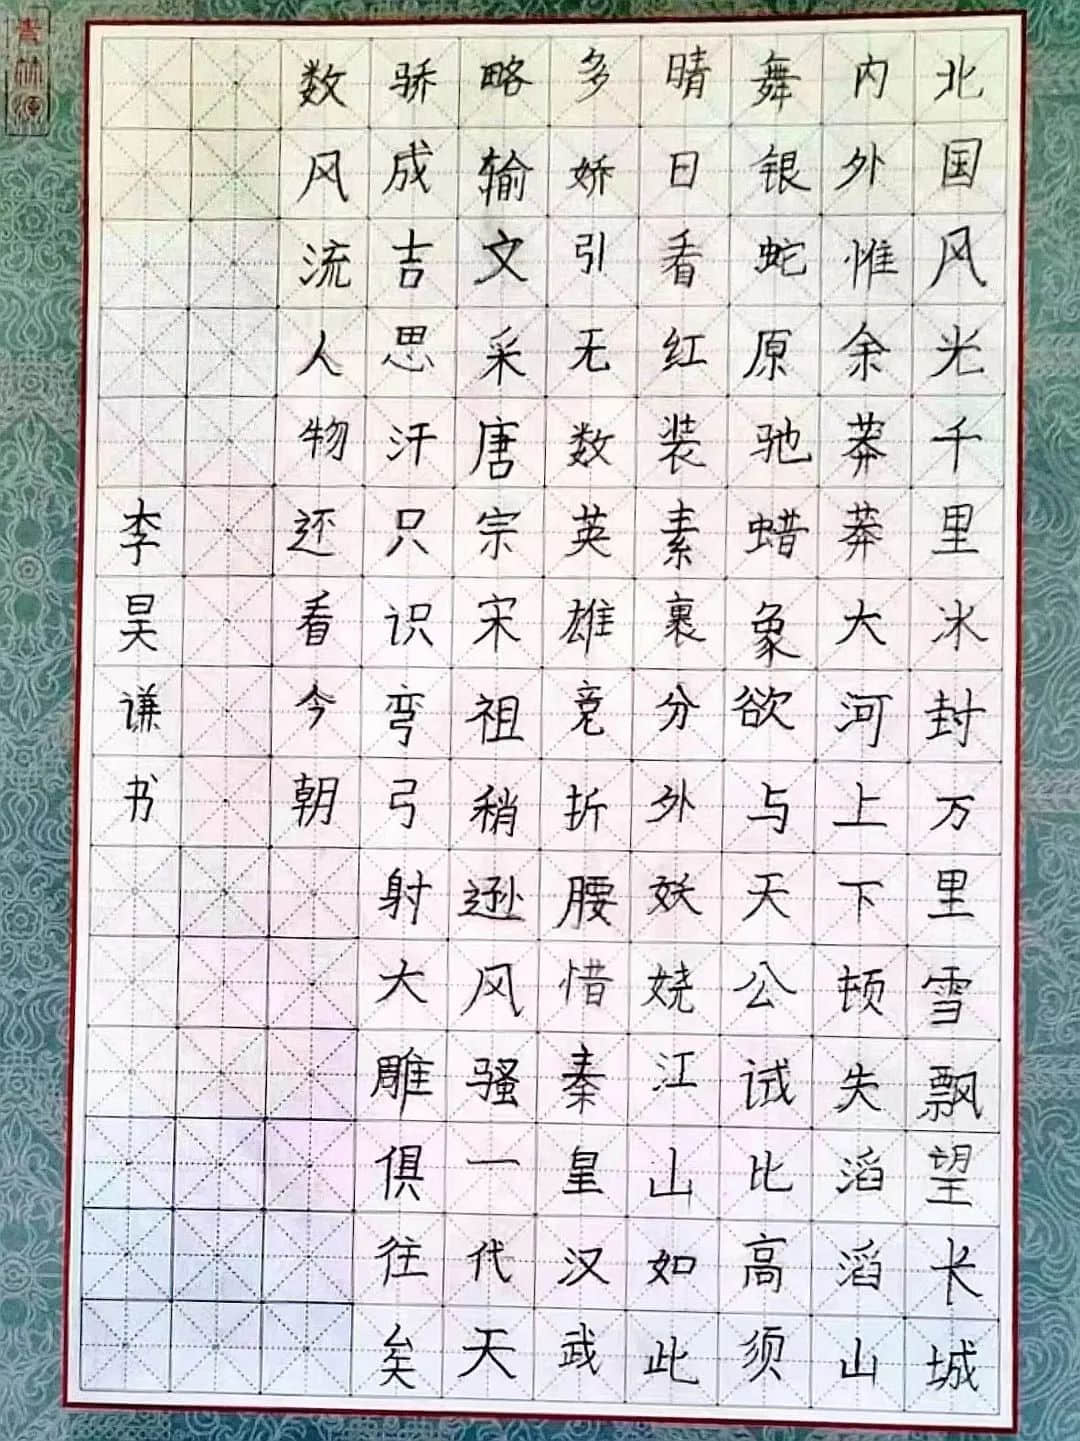 北国风光千里冰封万里雪飘望长城
内外惟余莽莽大河上下顿失滔滔山
舞银蛇原驰蜡象欲与天公试比高须
晴日看红装素裹分外妖娆江山如此
多娇引无数英雄竞折腰惜秦皇汉武
略输文采唐宗宋祖稍逊风骚一代天
骄成吉思汗只识弯弓射大雕俱往矣
数风流人物还看今朝
李昊谦书